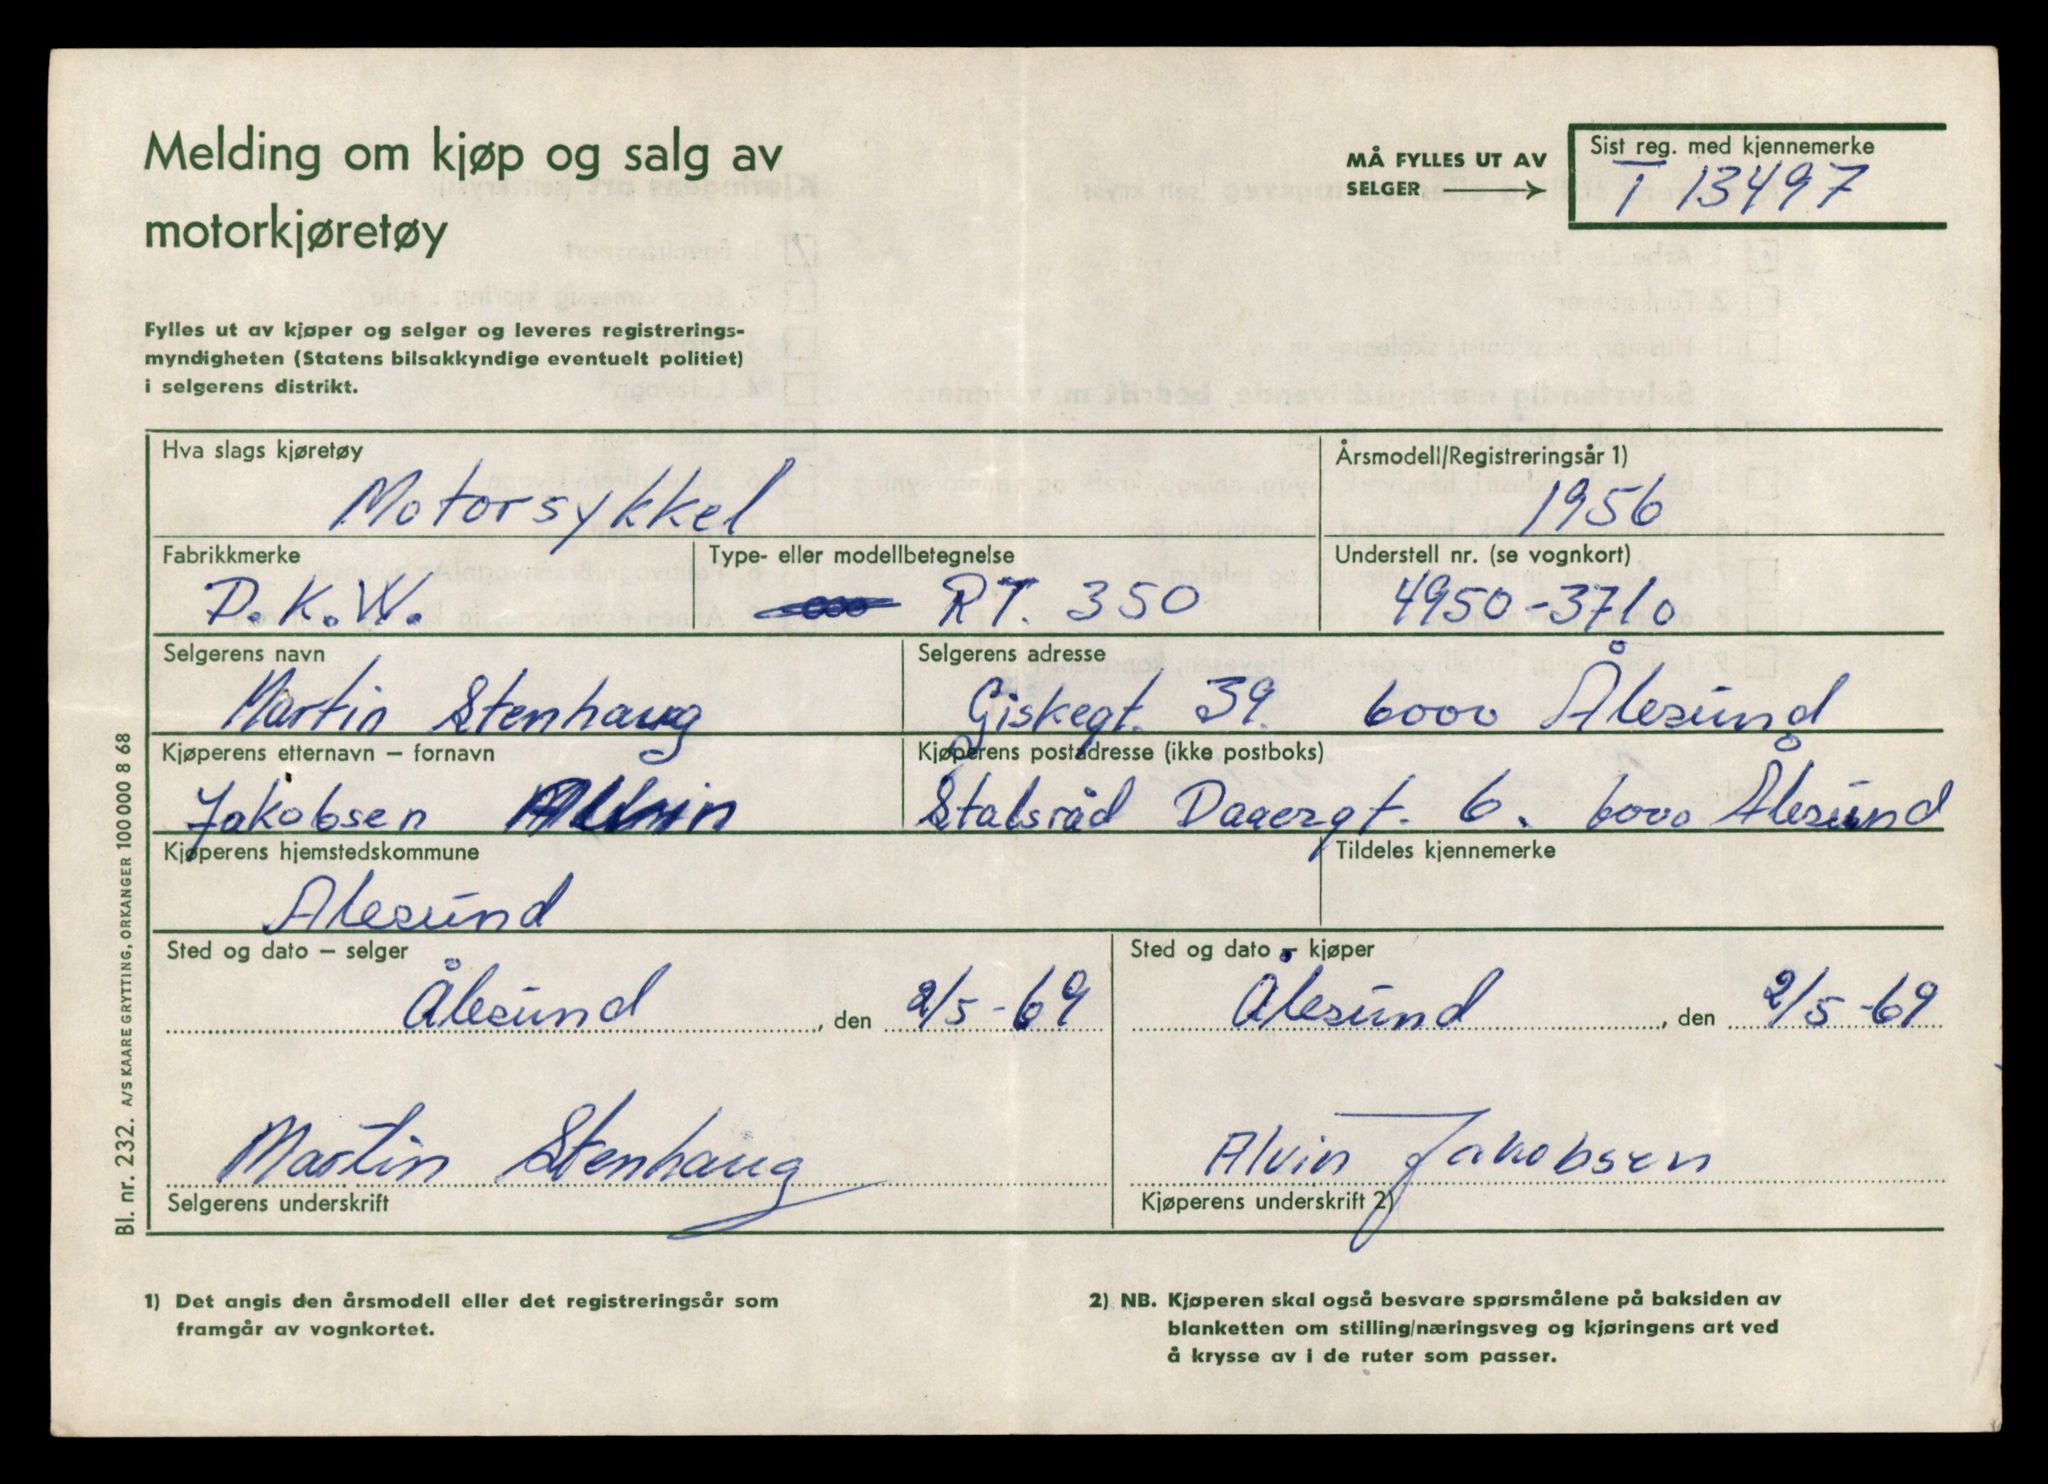 Melding om kjøp og salg av
motorkjøretøy
MÅ FYLLES UT AV
SELGER
Sist reg. med kjennemerke
T 13497
Fylles ut av kjøper og selger og leveres registrerings-
myndigheten (Statens bilsakkyndige eventuelt politiet)
i selgerens distrikt.
Hva slags kjøretøy
Motorsykkel
Årsmodell/Registreringsår 1)
1956
Fabrikkmerke
D.K.W.
Type- eller modellbetegnelse
RT. 350
Understell nr. (se vognkort)
4950-3710
Selgerens navn
Martin Stenhaug
Selgerens adresse
Giskegt. 39. 6000 Ålesund
Kjøperens etternavn – fornavn
Jakobsen Alvin
Kjøperens postadresse (ikke postboks)
Stalsråd Daaergt. 6. 6000 Ålesund
Kjøperens hjemstedskommune
Alesund
Tildeles kjennemerke
Sted og dato – selger
Ålesund, den 2/5-69
Sted og dato – kjøper
Ålesund, den 2/5-69
Martin Stenhaug
Selgerens underskrift
Alvin Jakobsen
Kjøperens underskrift 2)
1) Det angis den årsmodell eller det registreringsår som
framgår av vognkortet.
2) NB. Kjøperen skal også besvare spørsmålene på baksiden av
blanketten om stilling/næringsveg og kjøringens art ved
å krysse av i de ruter som passer.
Bl. nr. 232. A/S KAARE GRYTTING, ORKANGER 100 000 8 68